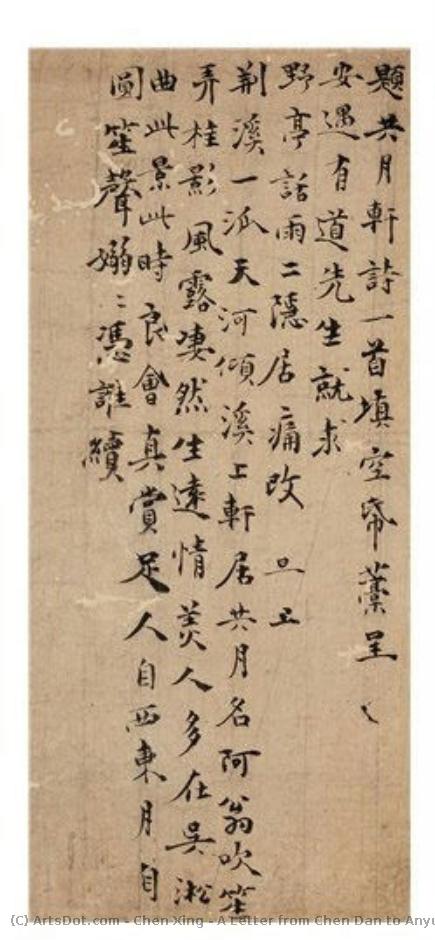 題共月軒詩一首填空席藁呈
安遇有道先生就求
野亭話雨二隱居痛改
荆溪一派天河傾溪上軒居共月名阿翁吹笙
弄桂影風露凄然生遠情美人多在吳淞
曲此景此時良會真賞足人自西東月自
圓笙聲嫋〻憑誰續
(C) ArtsDot.com - Chen Xing - A Letter from Chen Dan to Anyu